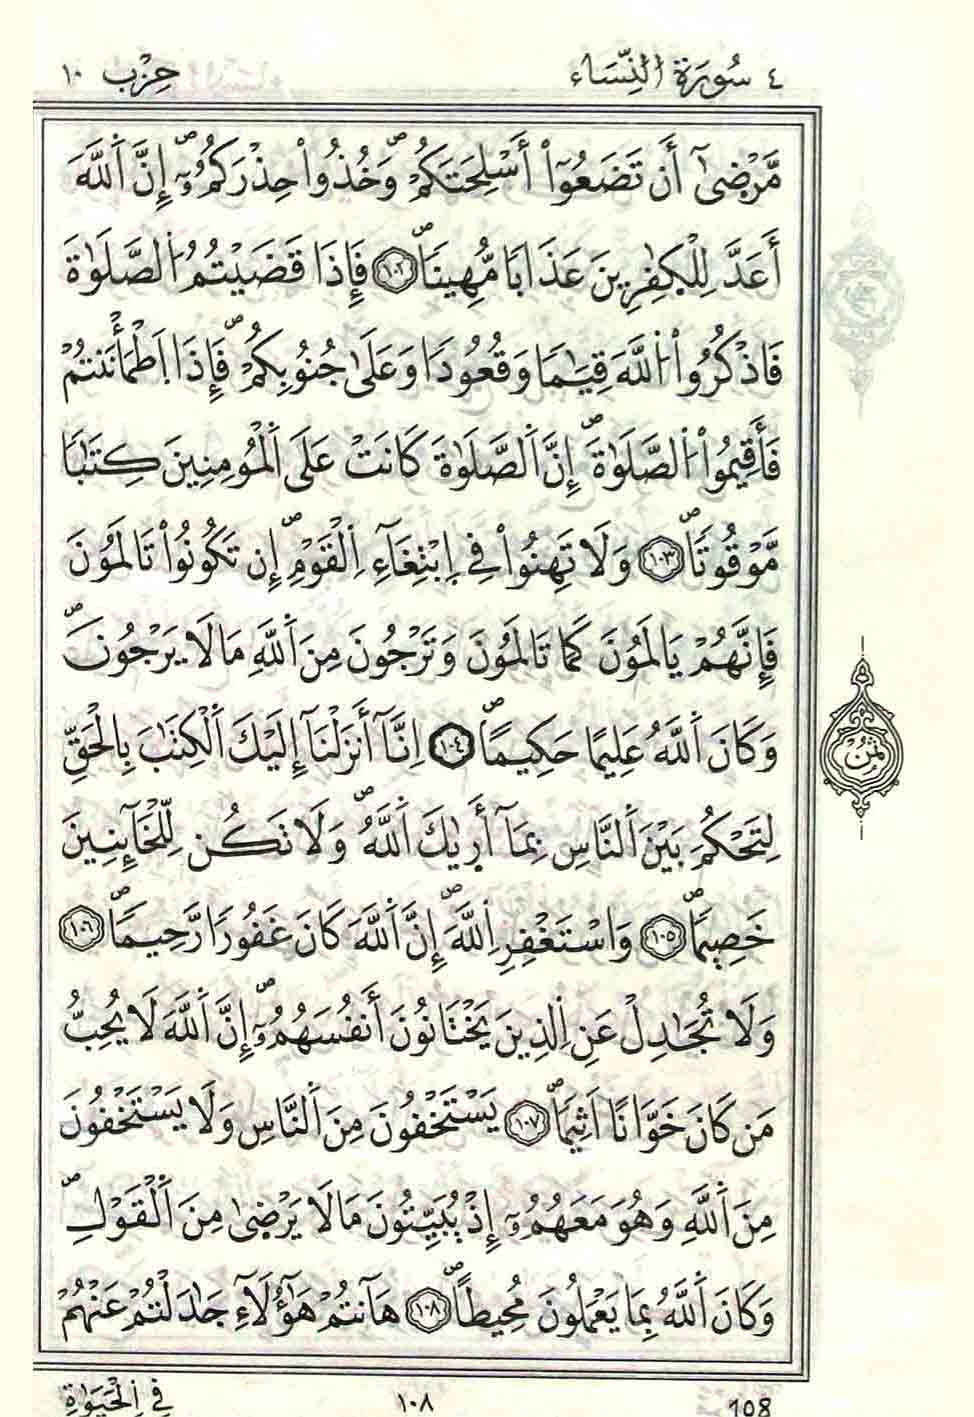 ٤ سُورَةُ النِّسَاء
حِزْب ١٠
مَّرْضَىٰٓ أَن تَضَعُوٓاْ أَسْلِحَتَكُمْۖ وَخُذُواْ حِذْرَكُمُۥٓۖ إِنَّ اَ۬للَّهَ
أَعَدَّ لِلْكٰ۪فِرِينَ عَذَاباٗ مُّهِيناٗۖ ١٠٢ فَإِذَا قَضَيْتُمُ اُ۬لصَّلَوٰةَ
فَاذْكُرُواْ اُ۬للَّهَ قِيَٰماٗ وَقُعُوداٗ وَعَلَىٰ جُنُوبِكُمْۖ فَإِذَا اَ۪طْمَأْنَنتُمْ
فَأَقِيمُواْ اُ۬لصَّلَوٰةَۖ إِنَّ اَ۬لصَّلَوٰةَ كَانَتْ عَلَى اَ۬لْمُومِنِينَ كِتَٰباٗ
مَّوْقُوتاٗۖ ١٠٣ وَلَا تَهِنُواْ فِي اِ۪بْتِغَآءِ اِ۬لْقَوْمِۖ إِن تَكُونُواْ تَالَمُونَ
فَإِنَّهُمْ يَالَمُونَ كَمَا تَالَمُونَ وَتَرْجُونَ مِنَ اَ۬للَّهِ مَا لَا يَرْجُونَۖ
وَكَانَ اَ۬للَّهُ عَلِيماً حَكِيماًۖ ١٠٤ اِنَّآ أَنزَلْنَآ إِلَيْكَ اَ۬لْكِتَٰبَ بِالْحَقِّ
لِتَحْكُمَ بَيْنَ اَ۬لنَّاسِ بِمَآ أَر۪يٰكَ اَ۬للَّهُۖ وَلَا تَكُن لِّلْخَآئِنِينَ
خَصِيماٗۖ ١٠٥ وَاسْتَغْفِرِ اِ۬للَّهَۖ إِنَّ اَ۬للَّهَ كَانَ غَفُوراٗ رَّحِيماٗۖ ١٠٦
وَلَا تُجَٰدِلْ عَنِ اِ۬لذِينَ يَخْتَانُونَ أَنفُسَهُمُۥٓۖ إِنَّ اَ۬للَّهَ لَا يُحِبُّ
مَن كَانَ خَوَّاناً اَثِيماٗۖ ١٠٧ يَسْتَخْفُونَ مِنَ اَ۬لنَّاسِ وَلَا يَسْتَخْفُونَ
مِنَ اَ۬للَّهِ وَهُوَ مَعَهُمُۥٓ إِذْ يُبَيِّتُونَ مَا لَا يَرْضَىٰ مِنَ اَ۬لْقَوْلِۖ
وَكَانَ اَ۬للَّهُ بِمَا يَعْمَلُونَ مُحِيطاًۖ ١٠٨ هَآنتُمْ هَٰٓؤُلَآءِ جَٰدَلْتُمْ عَنْهُمْ
ثُمُن
فِي اِ۬لْحَيَوٰةِ
١٠٨
108